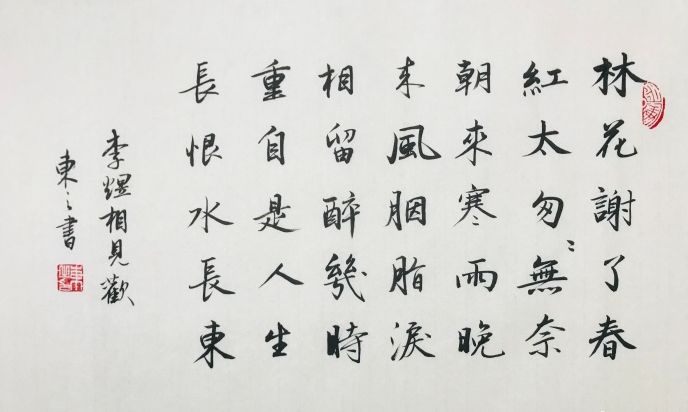 林花謝了春
紅太匆〻無奈
朝來寒雨晚
来風胭脂淚
相留醉幾時
重自是人生
長恨水長東
李煜相見歡
東之書